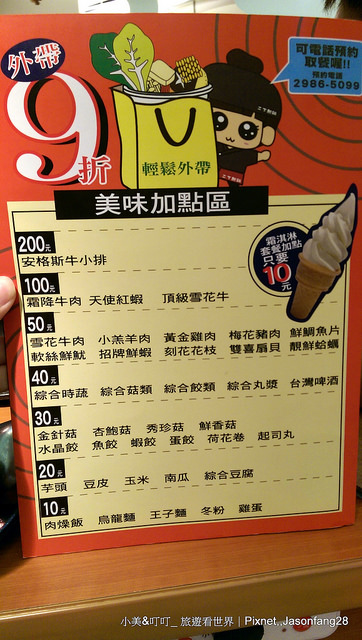 外帶
9折
可電話預約
取餐喔!!
預約電話
2986-5099
輕鬆外帶
美味加點區
霜淇淋
套餐加點
只要
10元
200元
安格斯牛小排
100元
霜降牛肉 天使紅蝦 頂級雪花牛
50元
雪花牛肉 小羔羊肉 黃金雞肉 梅花豬肉 鮮鯛魚片
軟絲鮮魷 招牌鮮蝦 刻花花枝 雙喜扇貝 靚鮮蛤蠣
40元
綜合時蔬 綜合菇類 綜合餃類 綜合丸獎 台灣啤酒
30元
金針菇 杏鮑菇 秀珍菇 鮮香菇
水晶餃 魚餃 蝦餃 蛋餃 荷花卷 起司丸
20元
芋頭 豆皮 玉米 南瓜 綜合豆腐
10元
肉燥飯 烏龍麵 王子麵 冬粉 雞蛋
小美&叮叮_ 旅遊看世界 | Pixnet,,Jasonfang28